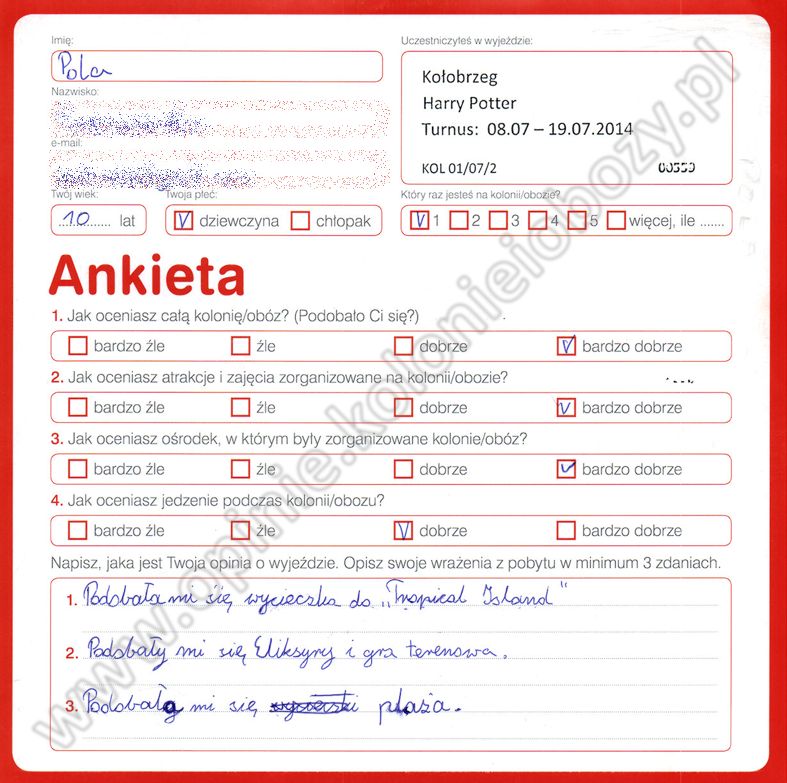 Imię:
Uczestniczyłeś w wyjeździe:
Pola
Kołobrzeg
Harry Potter
Turnus: 08.07 – 19.07.2014
KOL 01/07/2 00550
Nazwisko:
e-mail:
Twój wiek:
Twoja płeć:
Który raz jesteś na kolonii/obozie?
10 lat
V dziewczyna
chłopak
V 1 2 3 4 5 więcej, ile .......
Ankieta
1. Jak oceniasz całą kolonię/obóz? (Podobało Ci się?)
bardzo źle źle dobrze V bardzo dobrze
2. Jak oceniasz atrakcje i zajęcia zorganizowane na kolonii/obozie?
bardzo źle źle dobrze V bardzo dobrze
3. Jak oceniasz ośrodek, w którym były zorganizowane kolonie/obóz?
bardzo źle źle dobrze V bardzo dobrze
4. Jak oceniasz jedzenie podczas kolonii/obozu?
bardzo źle źle V dobrze bardzo dobrze
Napisz, jaka jest Twoja opinia o wyjeździe. Opisz swoje wrażenia z pobytu w minimum 3 zdaniach.
1. Podobała mi się wycieczka do „Tropical Island"
2. Podobały mi się Eliksyry i gra terenowa.
3. Podobała mi się plaża.
www.opinie.kolonieiobozy.pl